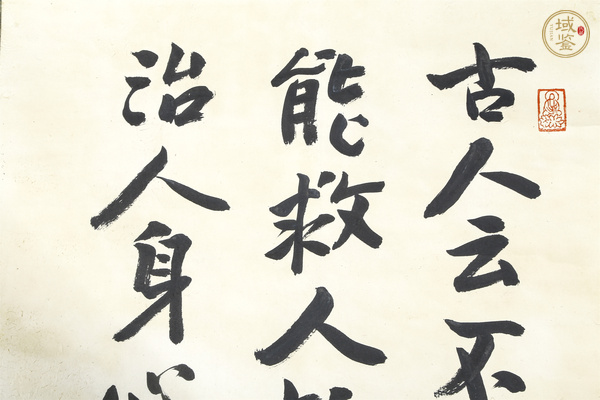 古人云不
能救人
治人身
域鉴